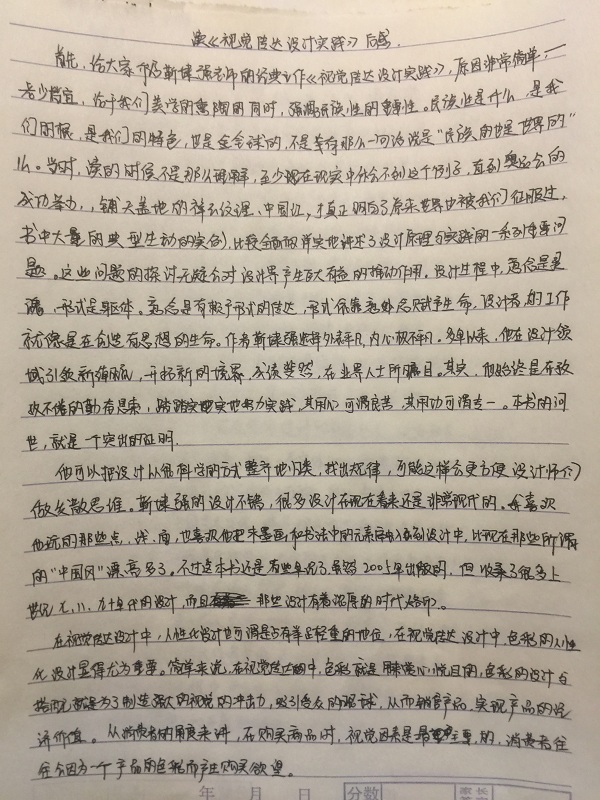 读《视觉传达设计实践》后感.
首先,给大家介绍靳埭强老师的经典之作《视觉传达设计实践》,原因非常简单,一
老少皆宜,给于我们美学的熏陶的同时,强调民族性的重要性。民族性是什么,是我
们的根,是我们的特色,也是全球的,不是幸存那么一句话说是"民族的也是世界的"
么。当时,读的时候不是那么理解,至少现在现实中体会不到这个例子,直到奥运会的
成功举办,铺天盖地的祥云纹理、中国红,才真正明白了原来世界也被我们征服过,
书中大量的典型生动的实例,比较全面和详实地讲述了设计原理与实践的一系列重要问
题。这些问题的探讨无疑会对设计界产生巨大有益的推动作用。设计过程中,意念是灵
魂,形式是躯体。意念是有赖于形式的传达,形式依靠意念赋予生命,设计者的工作
就像是在创造有思想的生命。作者靳埭强先生外表平凡,内心极不平凡。多年以来,他在设计领
域引领新潮流,开拓新的境界,成绩斐然,在业界人士所瞩目。其实,他始终是在孜
孜不倦的勤奋思索,踏踏实实地努力实践,其用心可谓良苦,其用功可谓专一。本书的问
世,就是一个突出的证明.
他可以把设计以很科学的方式整齐地归类,找出规律,可能这样会更方便设计师们
做发散思维。靳埭强的设计不错,很多设计在现在看来还是非常现代的。我喜欢
他运的那些点,线,面,也喜欢他把水墨画和书法中的元素应用到设计中,比现在那些所谓
的"中国风"漂高多了。不过这本书还是有些年岁了虽然2005年出版的,但收录了很多上
世纪七、八、九十年代的设计,而且那些设计有着浓厚的时代烙印。
在视觉传达设计中,人性化设计也可谓是占有举足轻重的地位,在视觉传达设计中,色彩的人性
化设计显得尤为重要。简单来说,在视觉传达的中,色彩就是用来赏心悦目的,色彩的设计与
搭配都是为了制造强大的视觉的冲击力,吸引色友的眼球,从而销售产品,实现产品的经
济价值。从消费者的角度来讲,在购买商品时,视觉因素是最重要的,消费者往
往会因为一个产品的色彩而产生购买欲望。
年 月 日 分数 家长